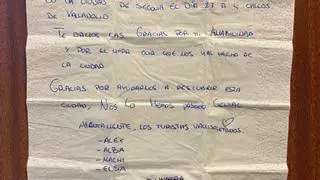 DO LA CIUDAD DE SEGOVIA EL DÍA 27 A 4 CHICOS
DE VALLADOLID
TE DAMOS LAS GRACIAS POR TU AMABILIDAD
Y POR EL TOUR QUE NOS HAS HECHO DE
LA CIUDAD
GRACIAS POR AYUDARNOS A DESCUBRIR ESTA
CIUDAD, NOS LO HEMOS PASADO GENIAL
LOS TURISTAS VALLISOLETANOS
- ALEX
- ALBA
- NACHI
- ELSA